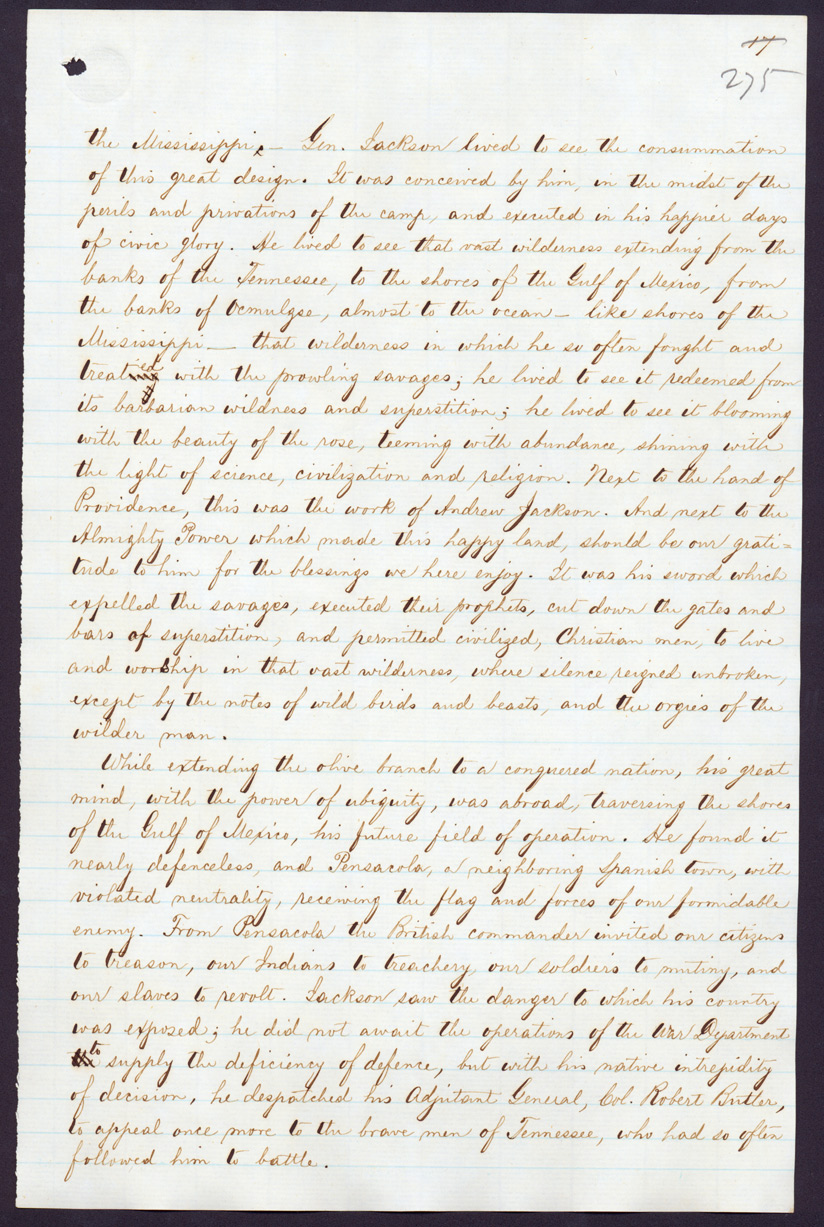 17
275
the Mississippi. — Gen. Jackson lived to see the consummation
of this great design. It was conceived by him, in the midst of the
perils and privations of the camp, and executed in his happier days
of civic glory. He lived to see that vast wilderness extending from the
banks of the Tennessee, to the shores of the Gulf of Mexico, from
the banks of Ocmulgee, almost to the ocean — like shores of the
Mississippi — that wilderness in which he so often fought and
treated with the prowling savages; he lived to see it redeemed from
its barbarian wildness and superstition; he lived to see it blooming
with the beauty of the rose, teeming with abundance, shining with
the light of science, civilization and religion. Next to the hand of
Providence, this was the work of Andrew Jackson. And next to the
Almighty Power which made this happy land, should be our grati=
tude to him for the blessings we here enjoy. It was his sword which
expelled the savages, executed their prophets, cut down the gates and
bars of superstition, and permitted civilized, Christian men, to live
and worship in that vast wilderness, where silence reigned unbroken,
except by the notes of wild birds and beasts, and the orgies of the
wilder man.
While extending the olive branch to a conquered nation, his great
mind, with the power of ubiquity, was abroad, traversing the shores
of the Gulf of Mexico, his future field of operation. He found it
nearly defenceless, and Pensacola, a neighboring Spanish town, with
violated neutrality, receiving the flag and forces of our formidable
enemy. From Pensacola the British commander invited our citizens
to treason, our Indians to treachery, our soldiers to mutiny, and
our slaves to revolt. Jackson saw the danger to which his country
was exposed; he did not await the operations of the War Department
to supply the deficiency of defence, but with his native intrepidity
of decision, he despatched his Adjutant General, Col. Robert Butler,
to appeal once more to the brave men of Tennessee, who had so often
followed him to battle.